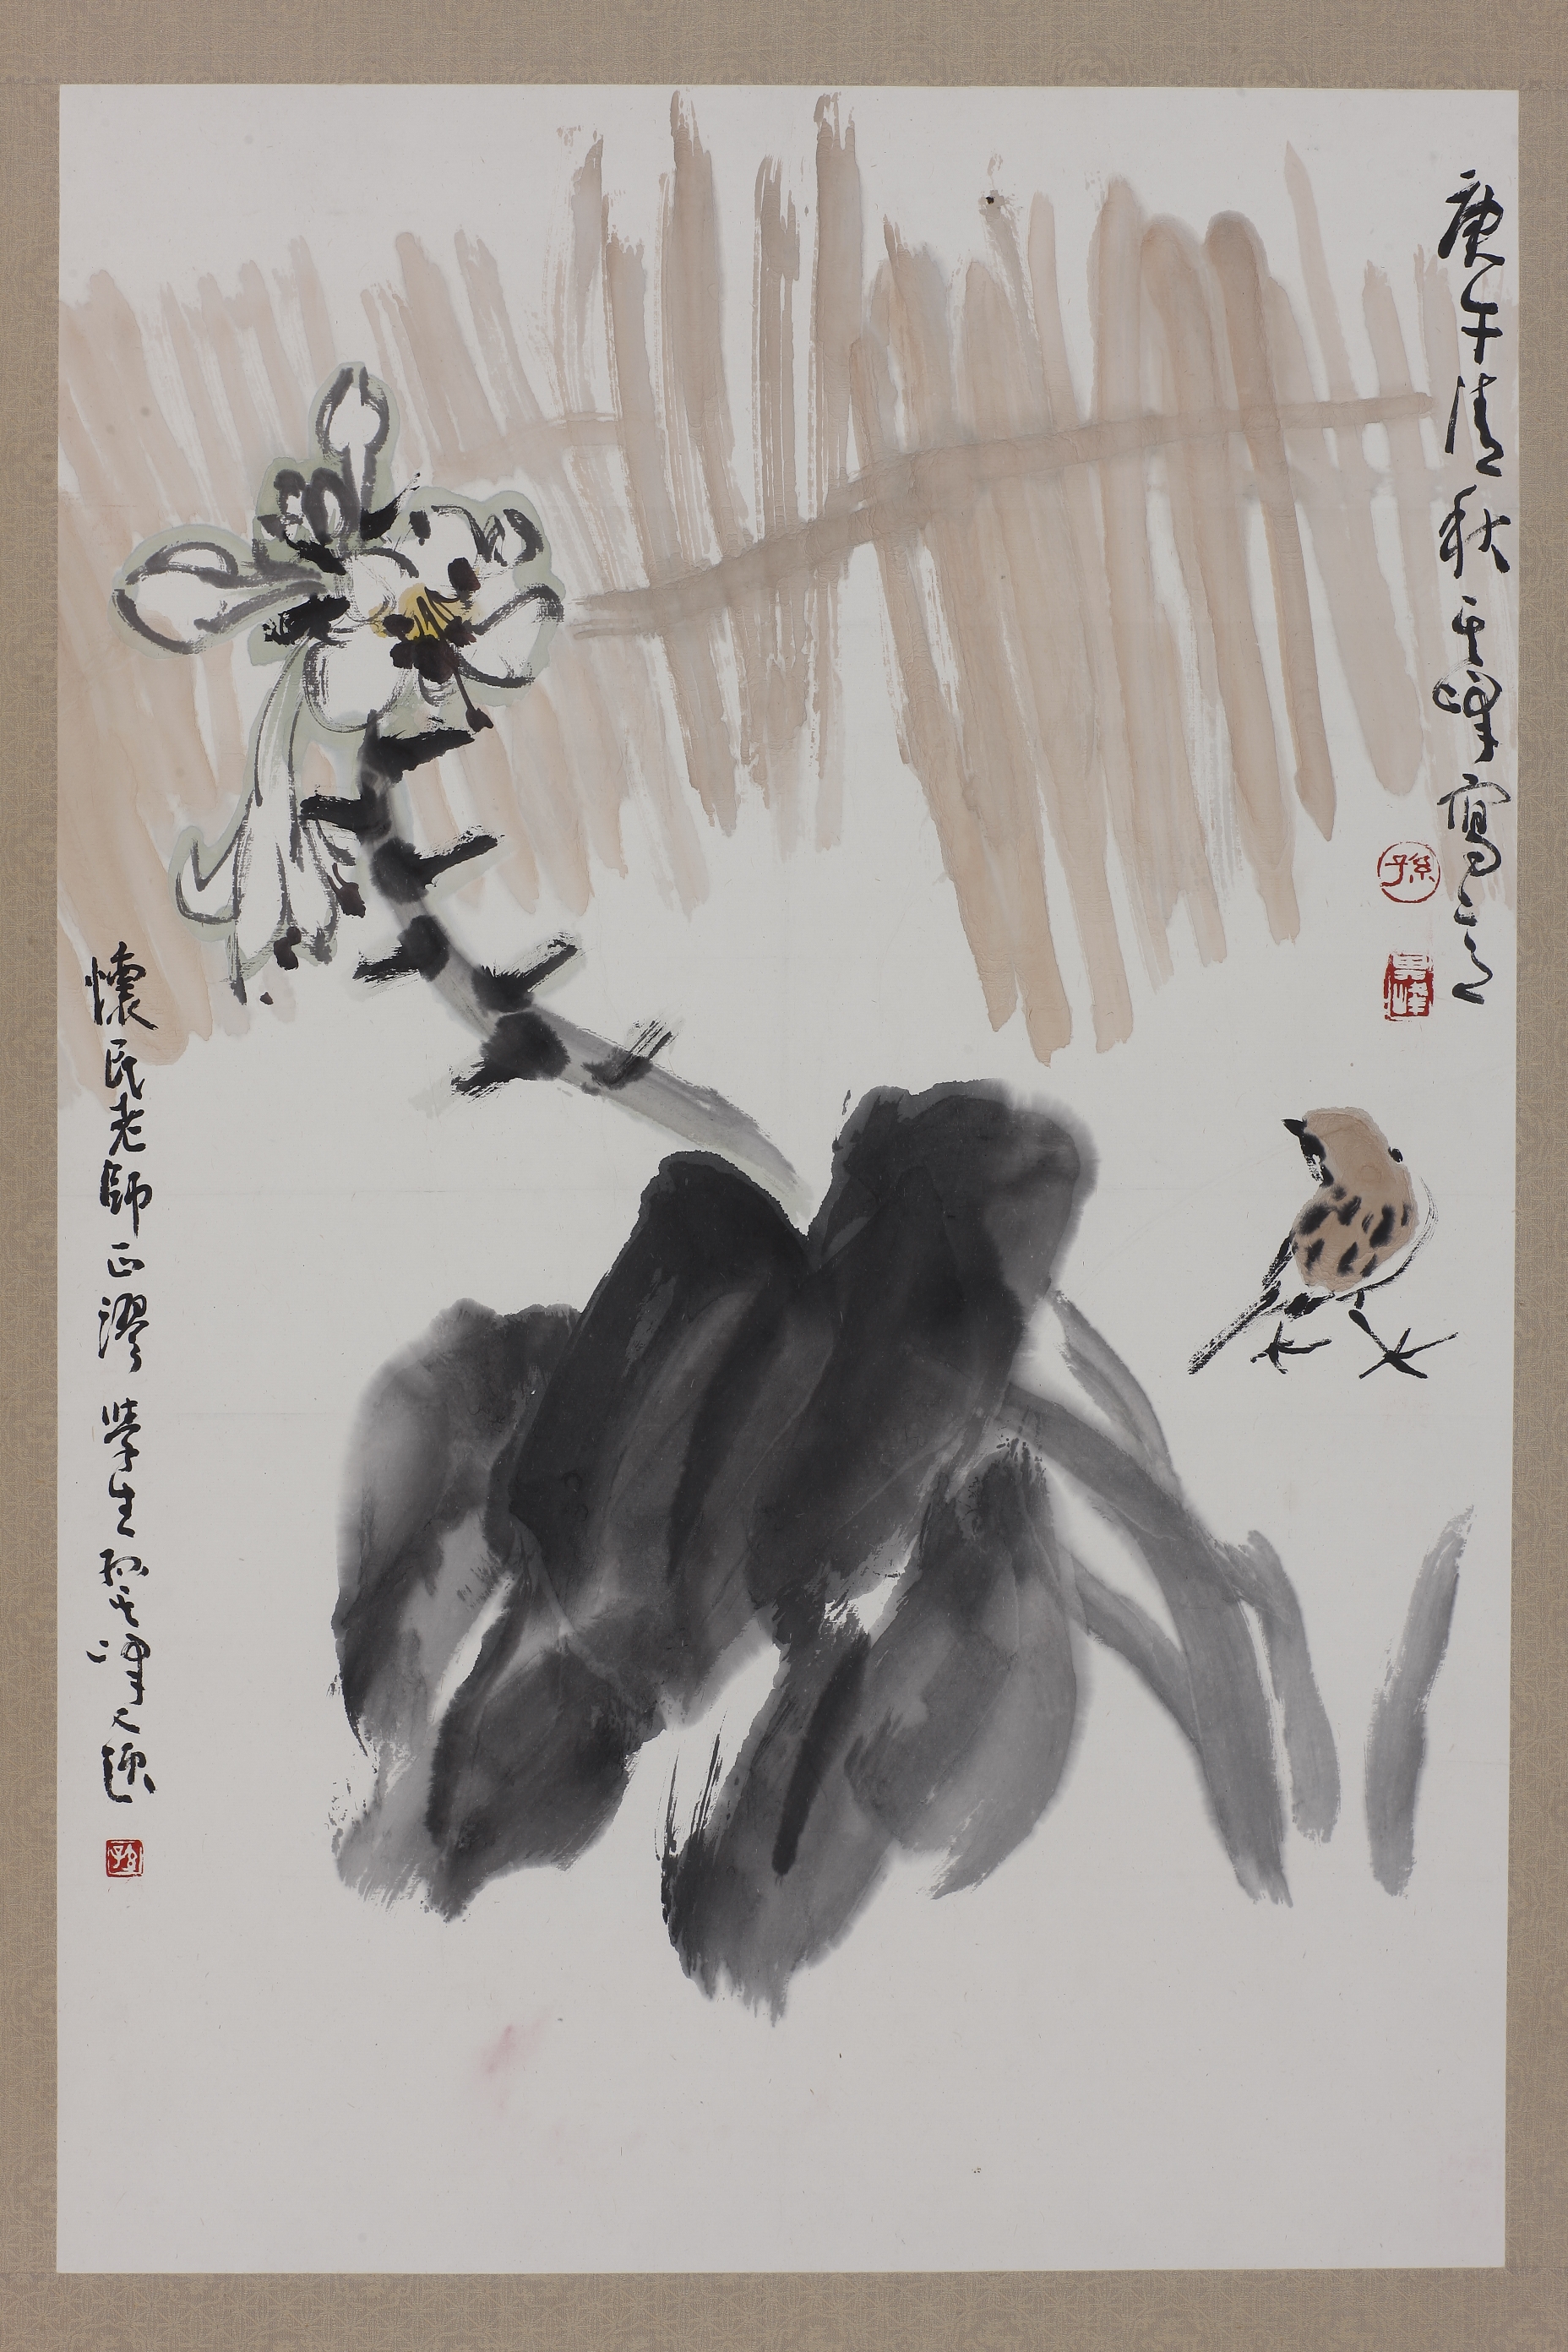 庚午清秋其峰寫之
孫
其峰
懷民老師正謬 學生孫其峰又題
孫